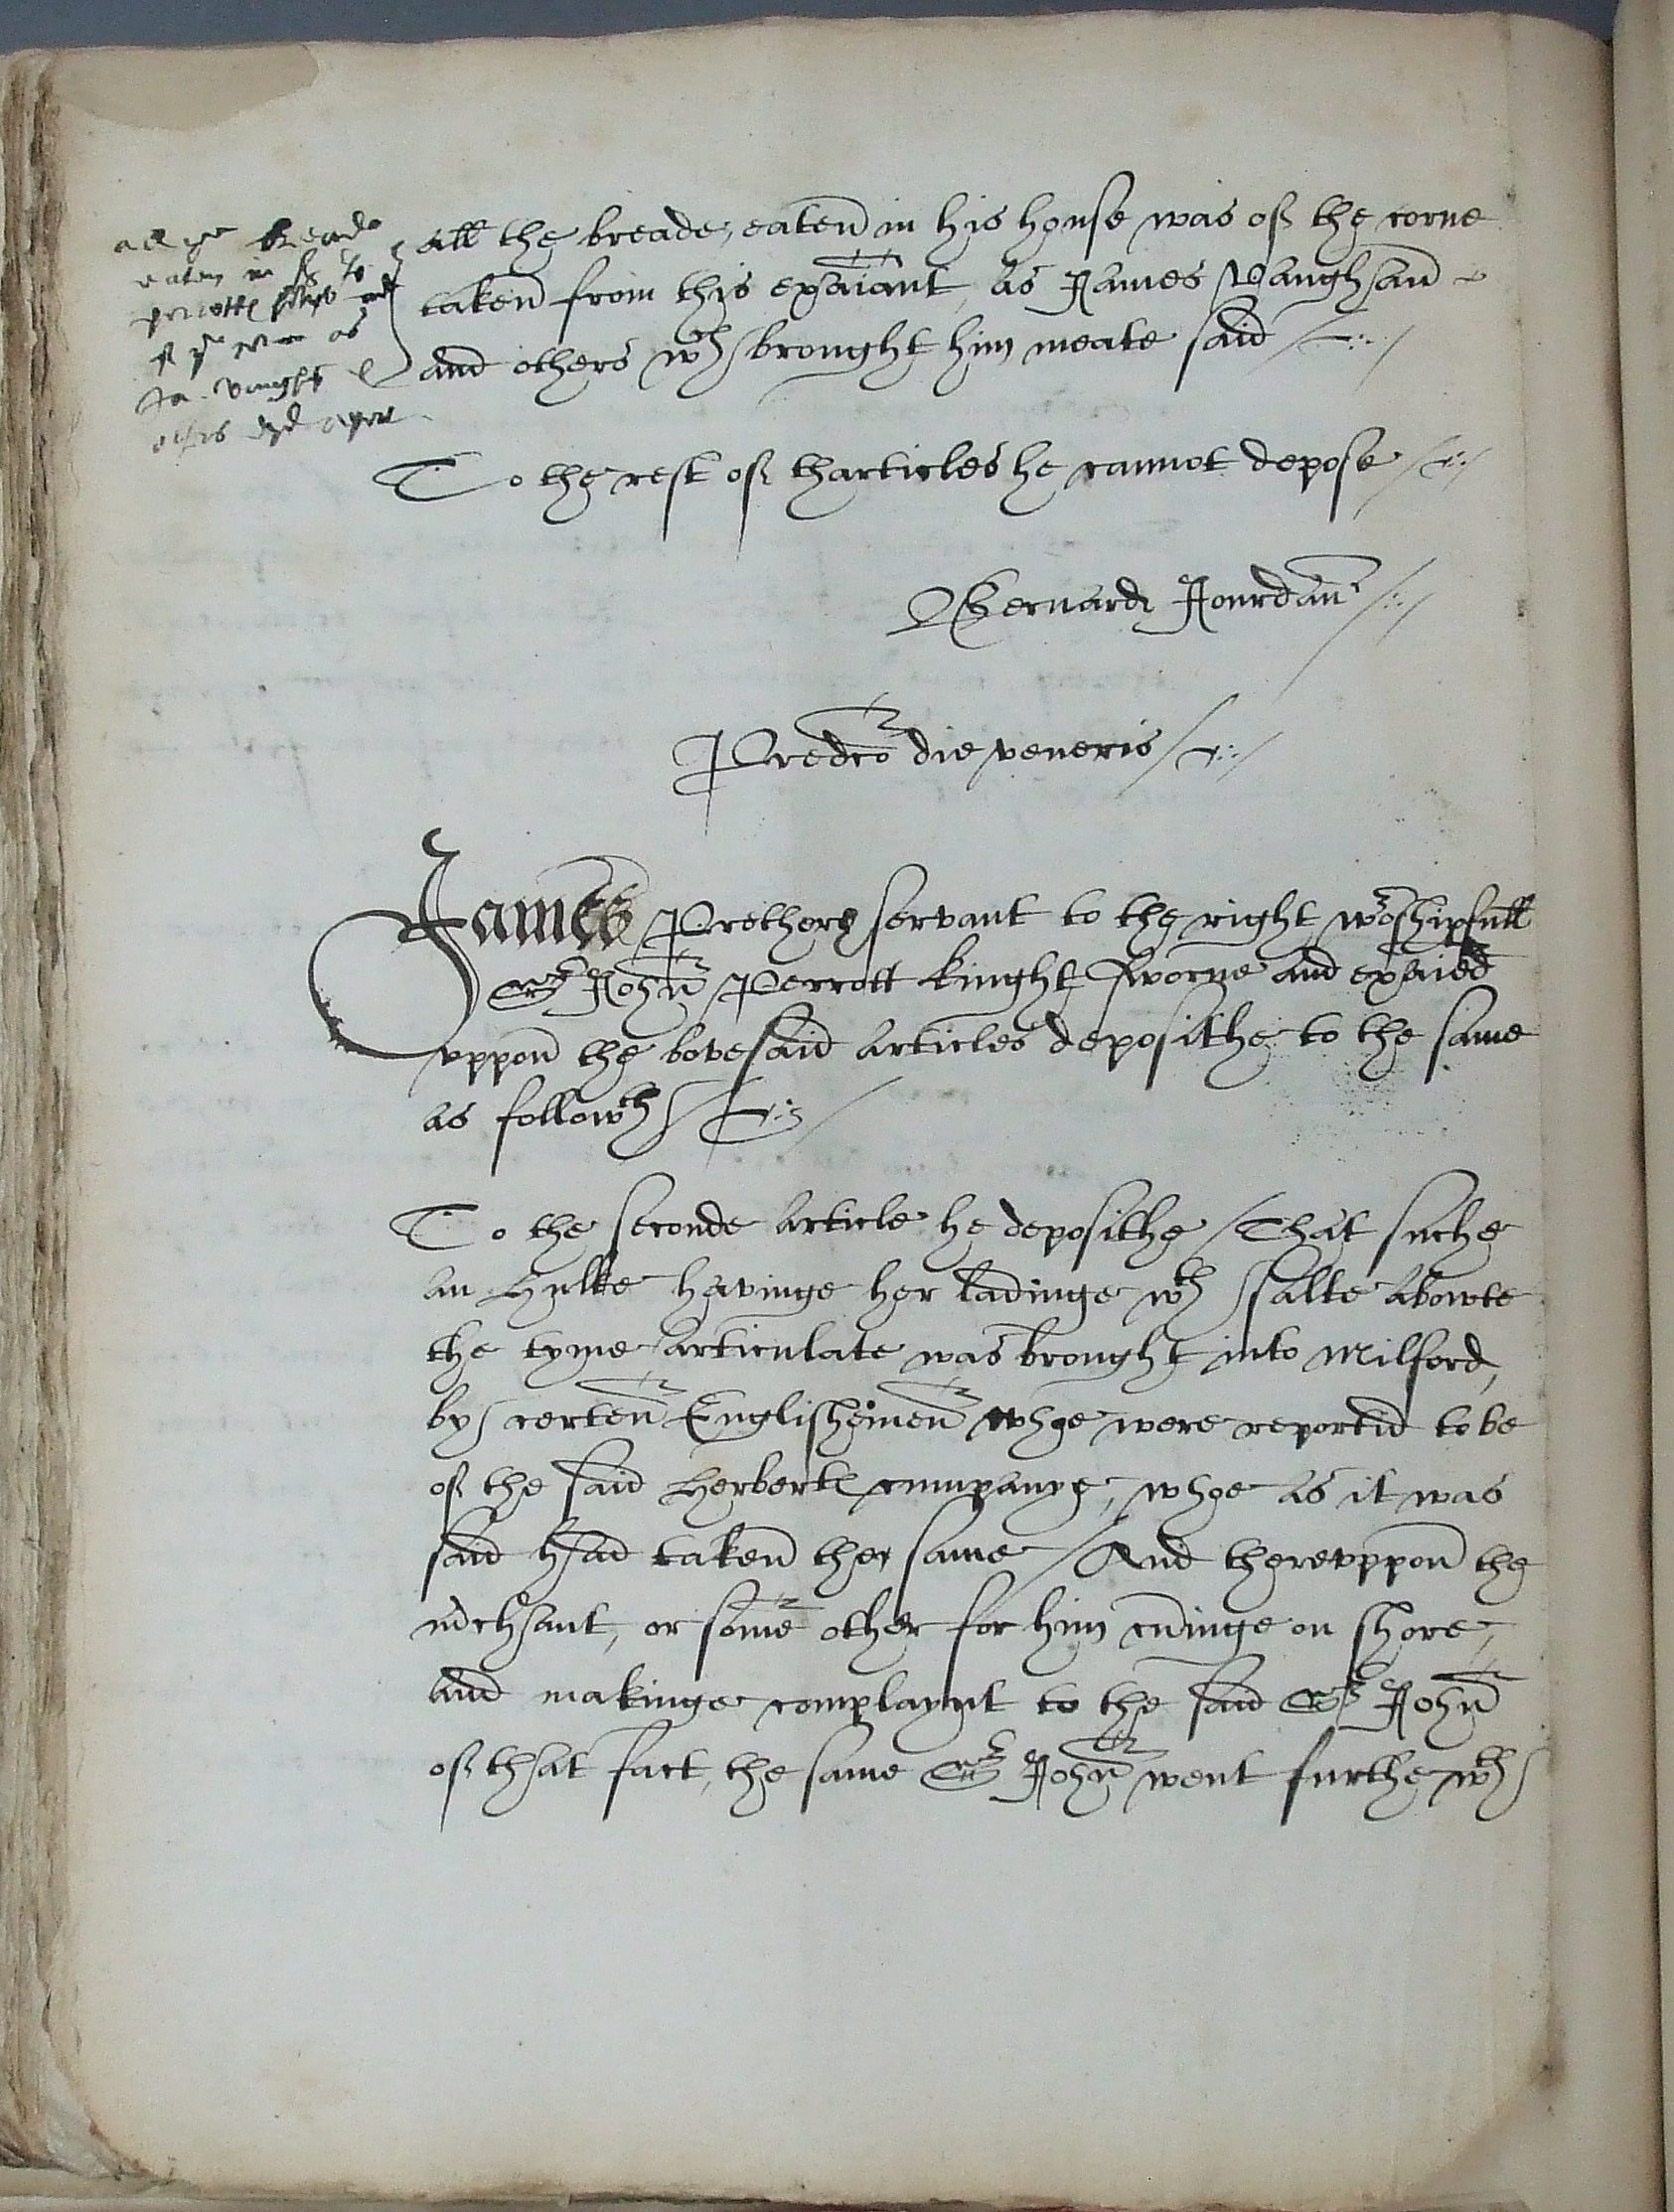 all ye breade
eaten in Sr Jo
perrottes howse
of ye corne as
Ja. vaugh &
others
all the breade, eaten in his house was of the corne
taken from this exaiant, as James Vaughan
and others wch brought him meate said
To the rest of tharticles he cannot depose
Bernard Jourdan
Predco die veneris
James Prethere servant to the right woshipfull
Sr John Perrott knight sworne and exaied
vppon the bovesaid articles deposithe to the same
as followth
To the seconde article he deposithe / That suche
an Hulke havinge her ladinge wth salte abowte
the tyme articulate was brought into Milford,
by certen Englishemen whoe were reportid to be
of the said Herbertes cumpanye, whoe as it was
said had taken the same / And therevppon the
mchant, or some other for him cminge on shore,
and makinge complaynt to the said Sr John
of that fact, the same Sr John went furthe wth